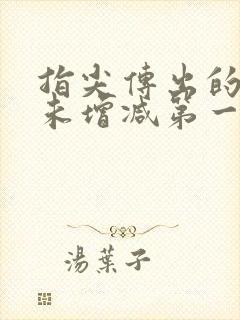 指尖傳出的
未增減第一
湯葉子